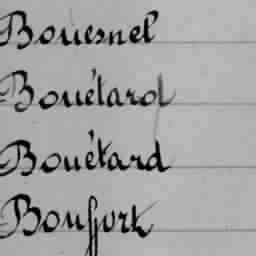 Bouesnel
Bouétard
Bouétard
Bouffort